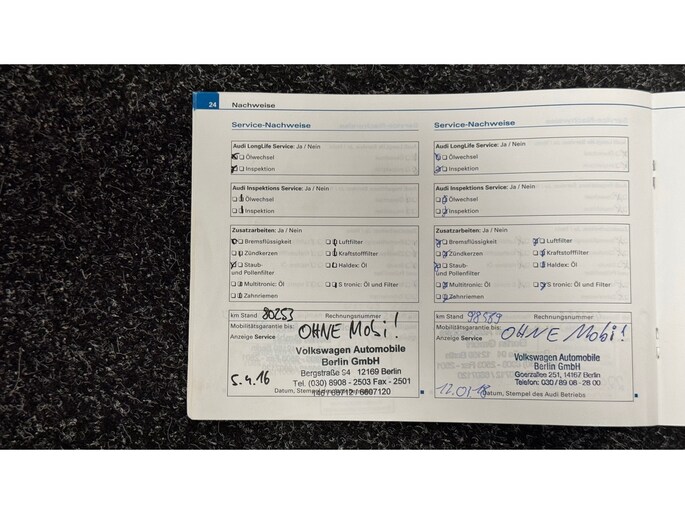 24 Nachweise
Service-Nachweise
Audi LongLife Service: Ja / Nein
Ölwechsel
Inspektion
Audi Inspektions Service: Ja / Nein
Ölwechsel
Inspektion
Zusatzarbeiten: Ja / Nein
Bremsflüssigkeit Luftfilter
Zündkerzen Kraftstofffilter
Staub- Haldex: Öl
und Pollenfilter
Multitronic: Öl S tronic: Öl und Filter
Zahnriemen
km Stand 80253 Rechnungsnummer
Mobilitätsgarantie bis: OHNE Mobi!
Anzeige Service
Volkswagen Automobile
Berlin GmbH
Bergstraße 94 12169 Berlin
5.4.16 Tel. (030) 8908 - 2503 Fax - 2501
Datum,
Service-Nachweise
Audi LongLife Service: Ja / Nein
Ölwechsel
Inspektion
Audi Inspektions Service: Ja / Nein
Ölwechsel
Inspektion
Zusatzarbeiten: Ja / Nein
Bremsflüssigkeit Luftfilter
Zündkerzen Kraftstofffilter
Staub- Haldex: Öl
und Pollenfilter
Multitronic: Öl S tronic: Öl und Filter
Zahnriemen
km Stand 98569 Rechnungsnummer
Mobilitätsgarantie bis: OHNE Mobi!
Anzeige Service
Volkswagen Automobile
Berlin GmbH
Goerzallee 251, 14167 Berlin
Telefon: 030 / 89 08 - 28 00
12.01.18
Datum, Stempel des Audi Betriebs